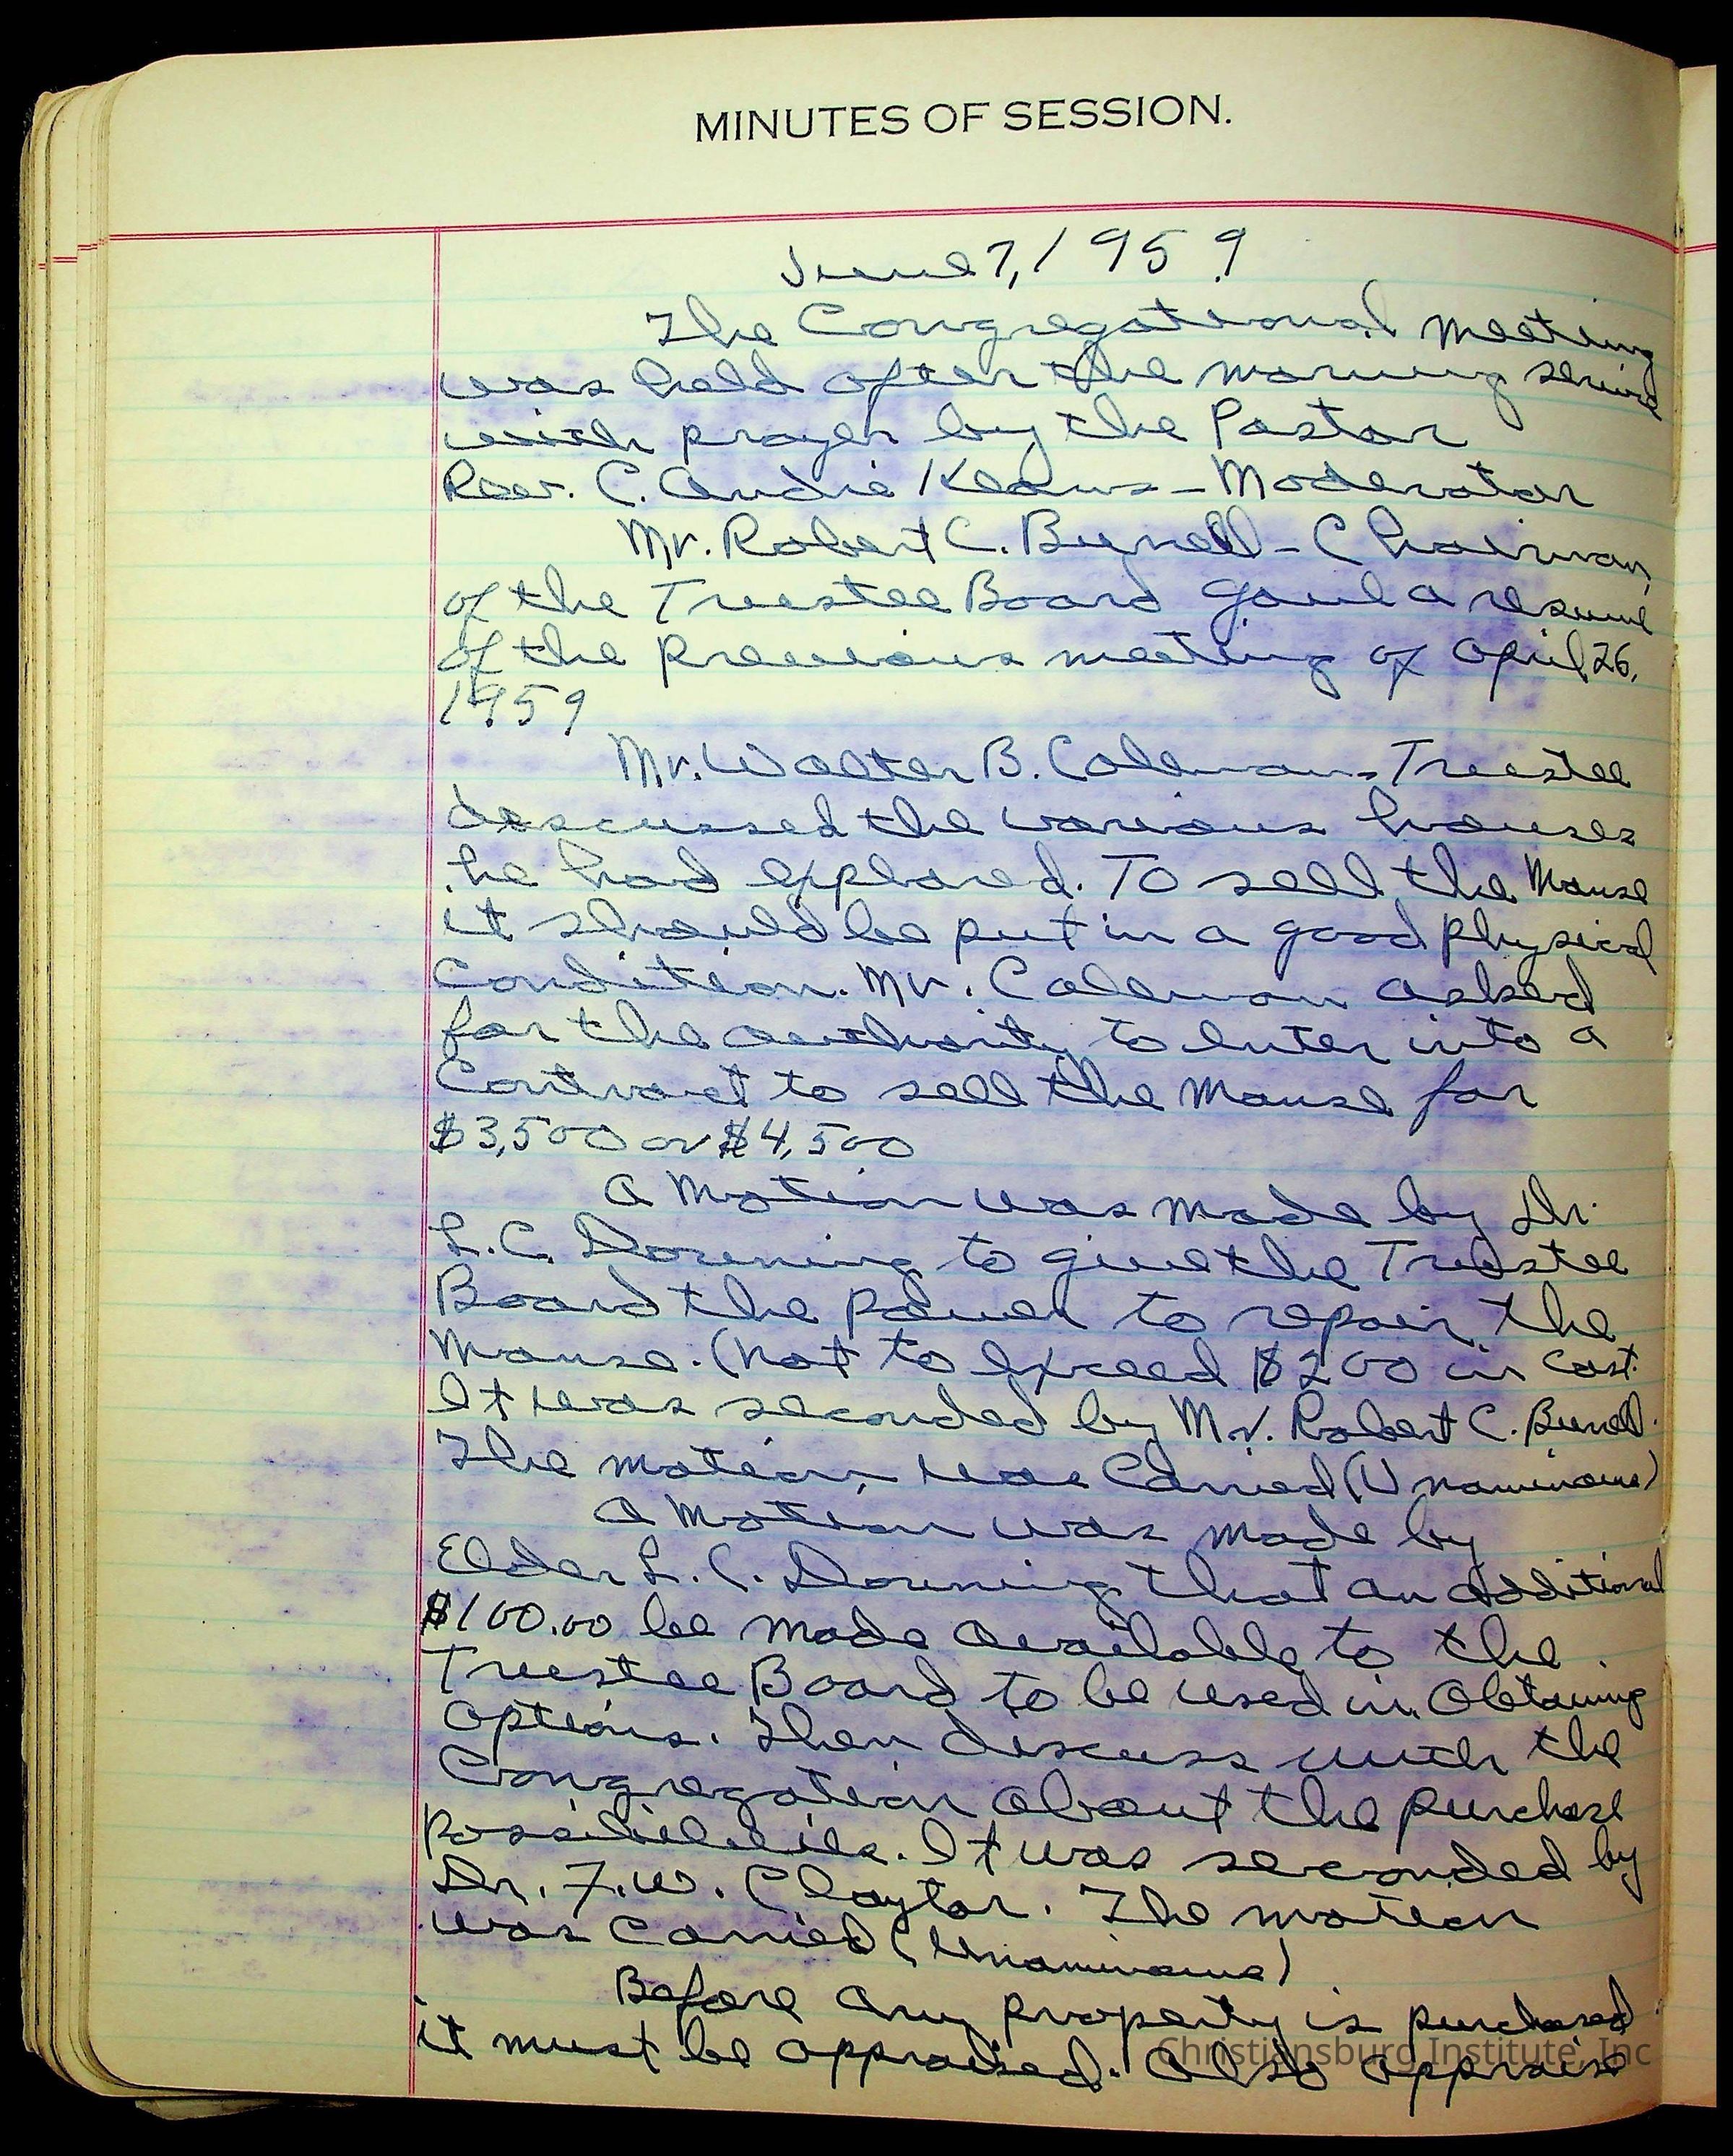 MINUTES OF SESSION.
June 7, 1959
The Congregational meeting
was held after the morning service
with prayer by the Pastor
Rev. C. Andie Kearns - Moderator
Mr. Robert C. Burrell - Chairman
of the Trustee Board gave a resume
of the previous meeting of April 26,
1959
Mr. Walter B. Coleman - Trustee
discussed the various houses
he had explored. To sell the Manse
it should be put in a good physical
condition. Mr. Coleman asked
for the authority to enter into a
Contract to sell the Manse for
$3,500 or $4,500
A Motion was made by Dr.
L.C. Downing to give the Trustee
Board the power to repair the
Manse. (not to exceed $200 in cost.
It was seconded by Mr. Robert C. Burrell.
The motion was Carried (Unaminous)
A Motion was made by
Elder L. C. Downing that an additional
$100.00 be made available to the
Trustee Board to be used in Obtaining
options. Then discuss with the
Congregation about the purchase
possibilities. It was seconded by
Dr. F.W. Claytor. The motion
was Carried (Unaminous)
Before any property is purchased
it must be appraised. Also appraise
Christiansburg Institute, Inc